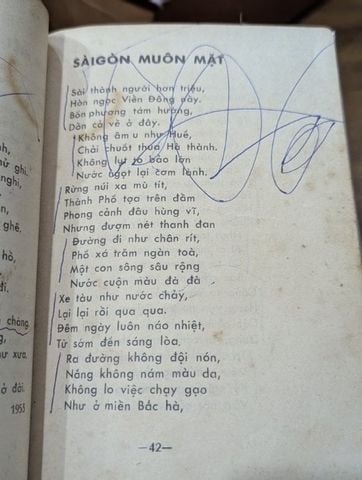 SÀIGÒN MUÔN MẶT
Sài thành người hơn triệu,
Hòn ngọc Viễn Đông này.
Bốn phương tám hướng,
Dồn cả về ở đây.
Không âm u như Huế,
Chải chuốt thua Hà thành.
Không lụt tố bão lớn
Nước ngọt lại cơm lành.
Rừng núi xa mù tít,
Thành Phố tọa trên đầm
Phong cảnh đâu hùng vĩ,
Nhưng đượm nét thanh đan
Đường đi như chân rít,
Phố xá trăm ngàn toà,
Một con sông sâu rộng
Nước cuộn màu đà đà
Xe tàu như nước chảy,
Lại lại rồi qua qua.
Đêm ngày luôn náo nhiệt,
Từ sớm đến sáng lòa.
Ra đường không đội nón,
Nắng không nám màu da,
Không lo việc chạy gạo
Như ở miền Bắc hà,
—42—
nh,
ghi,
ghê.
hò,
đi.
chàng.
ư xưa.
ở đời.
1953